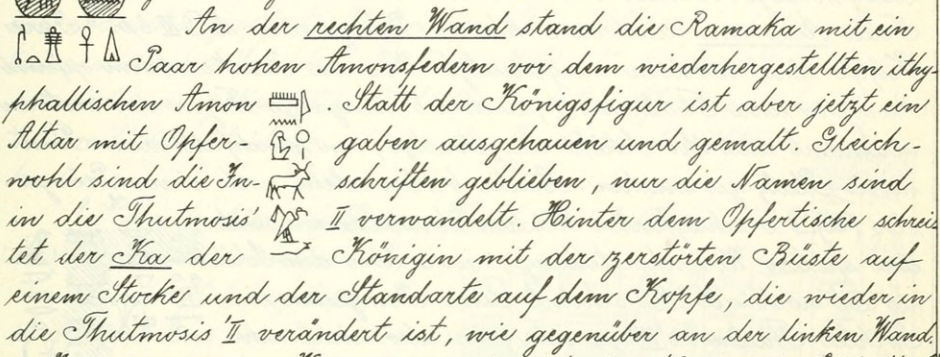 An der rechten Wand stand die Ramaka mit ein
Paar hohen Amonsfedern vor dem wiederhergestellten ithy-
phallischen Amon . Statt der Königsfigur ist aber jetzt ein
Altar mit Opfer- gaben ausgehauen und gemalt. Gleich-
wohl sind die In- schriften geblieben, nur die Namen sind
in die Thutmosis' II verwandelt. Hinter dem Opfertische schrei-
tet der Ka der Königin mit der zerstörten Büste auf
einem Stocke und der Standarte auf dem Kopfe, die wieder in
die Thutmosis' II verändert ist, wie gegenüber an der linken Wand.